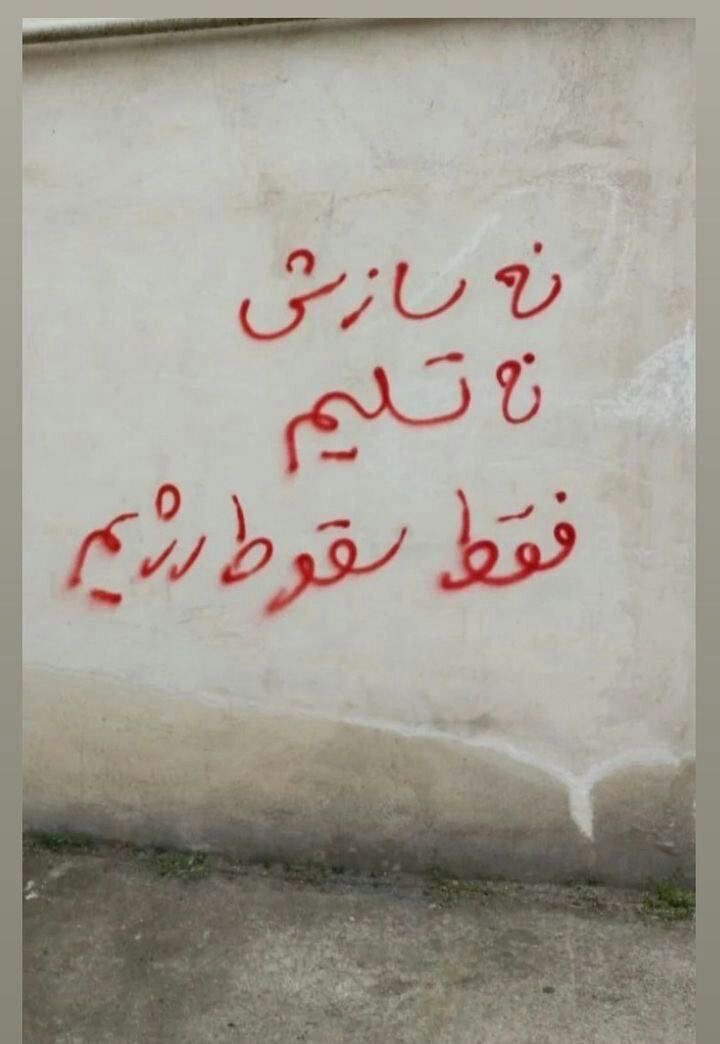 نه سازش
نه تسلیم
فقط سقوط رژیم